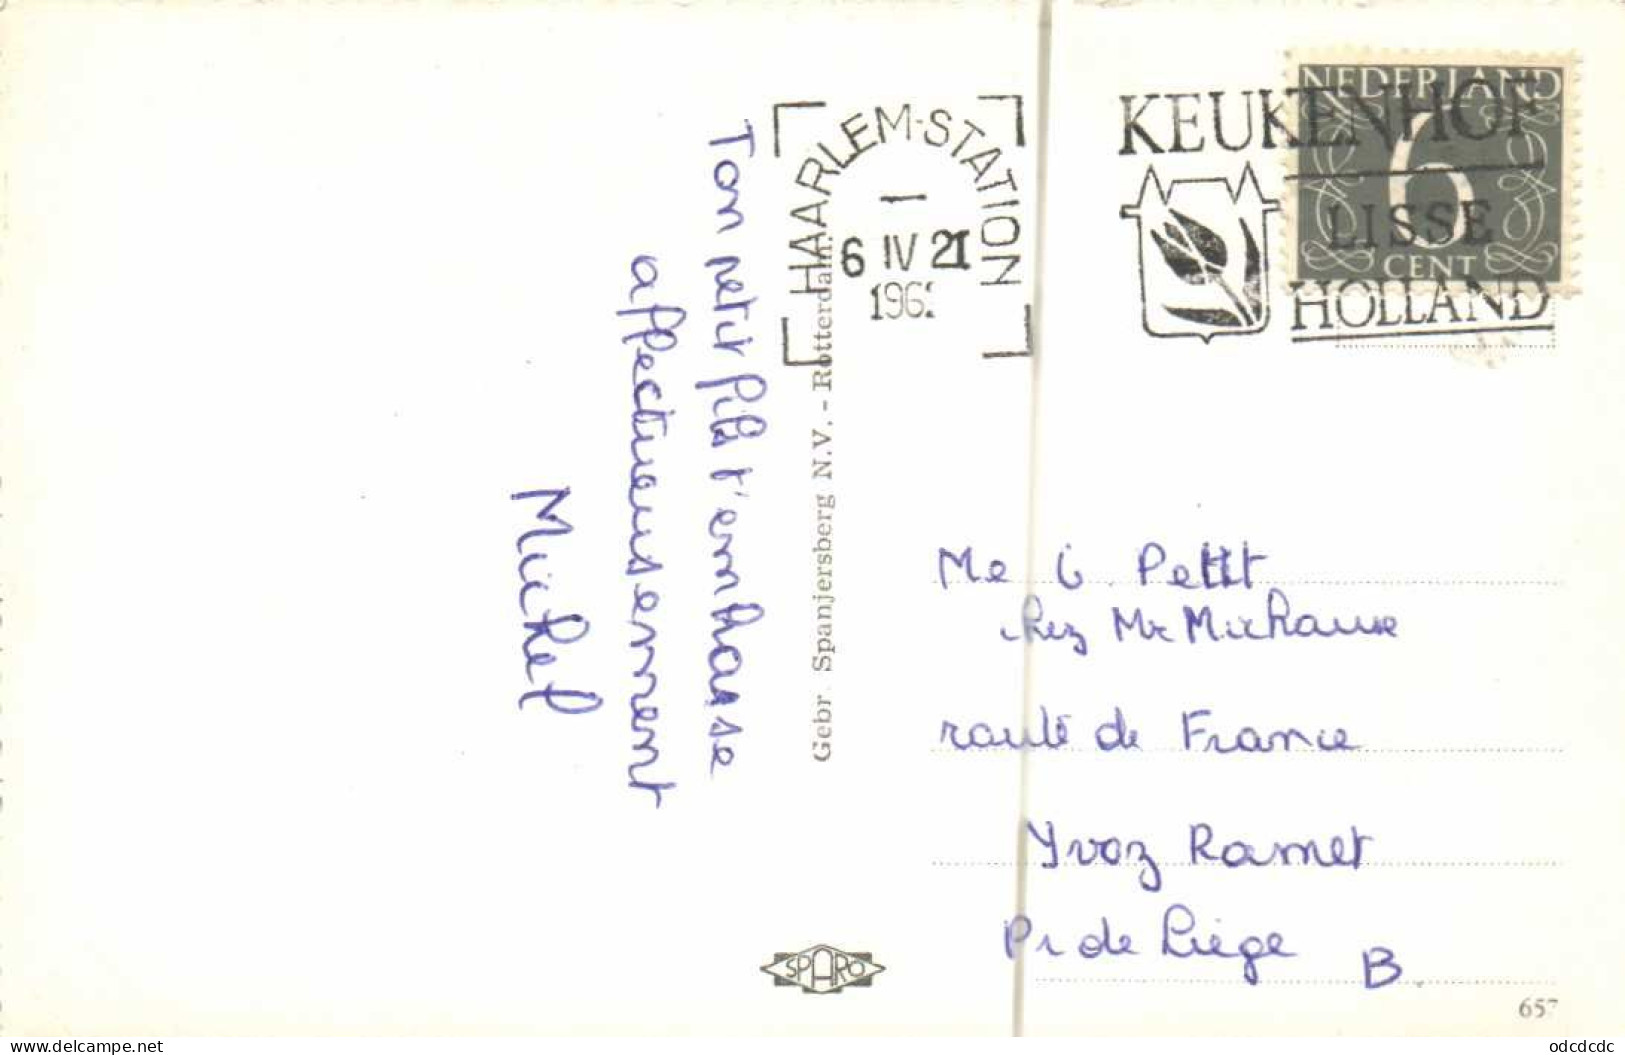 Ton petit fils t'embrasse
affectueusement
Michel
Gebr. Spanjersberg N.V. - Rotterdam.
HAARLEM-STATION
6 IV 21
196
KEUKENHOF
LISSE
HOLLAND
NEDERLAND
6
CENT
Me G. Petit
chez Mr
route de France
Yvoz Ramet
Pr de Liège B
SPARO
657
delcampe.net
odcdcdc